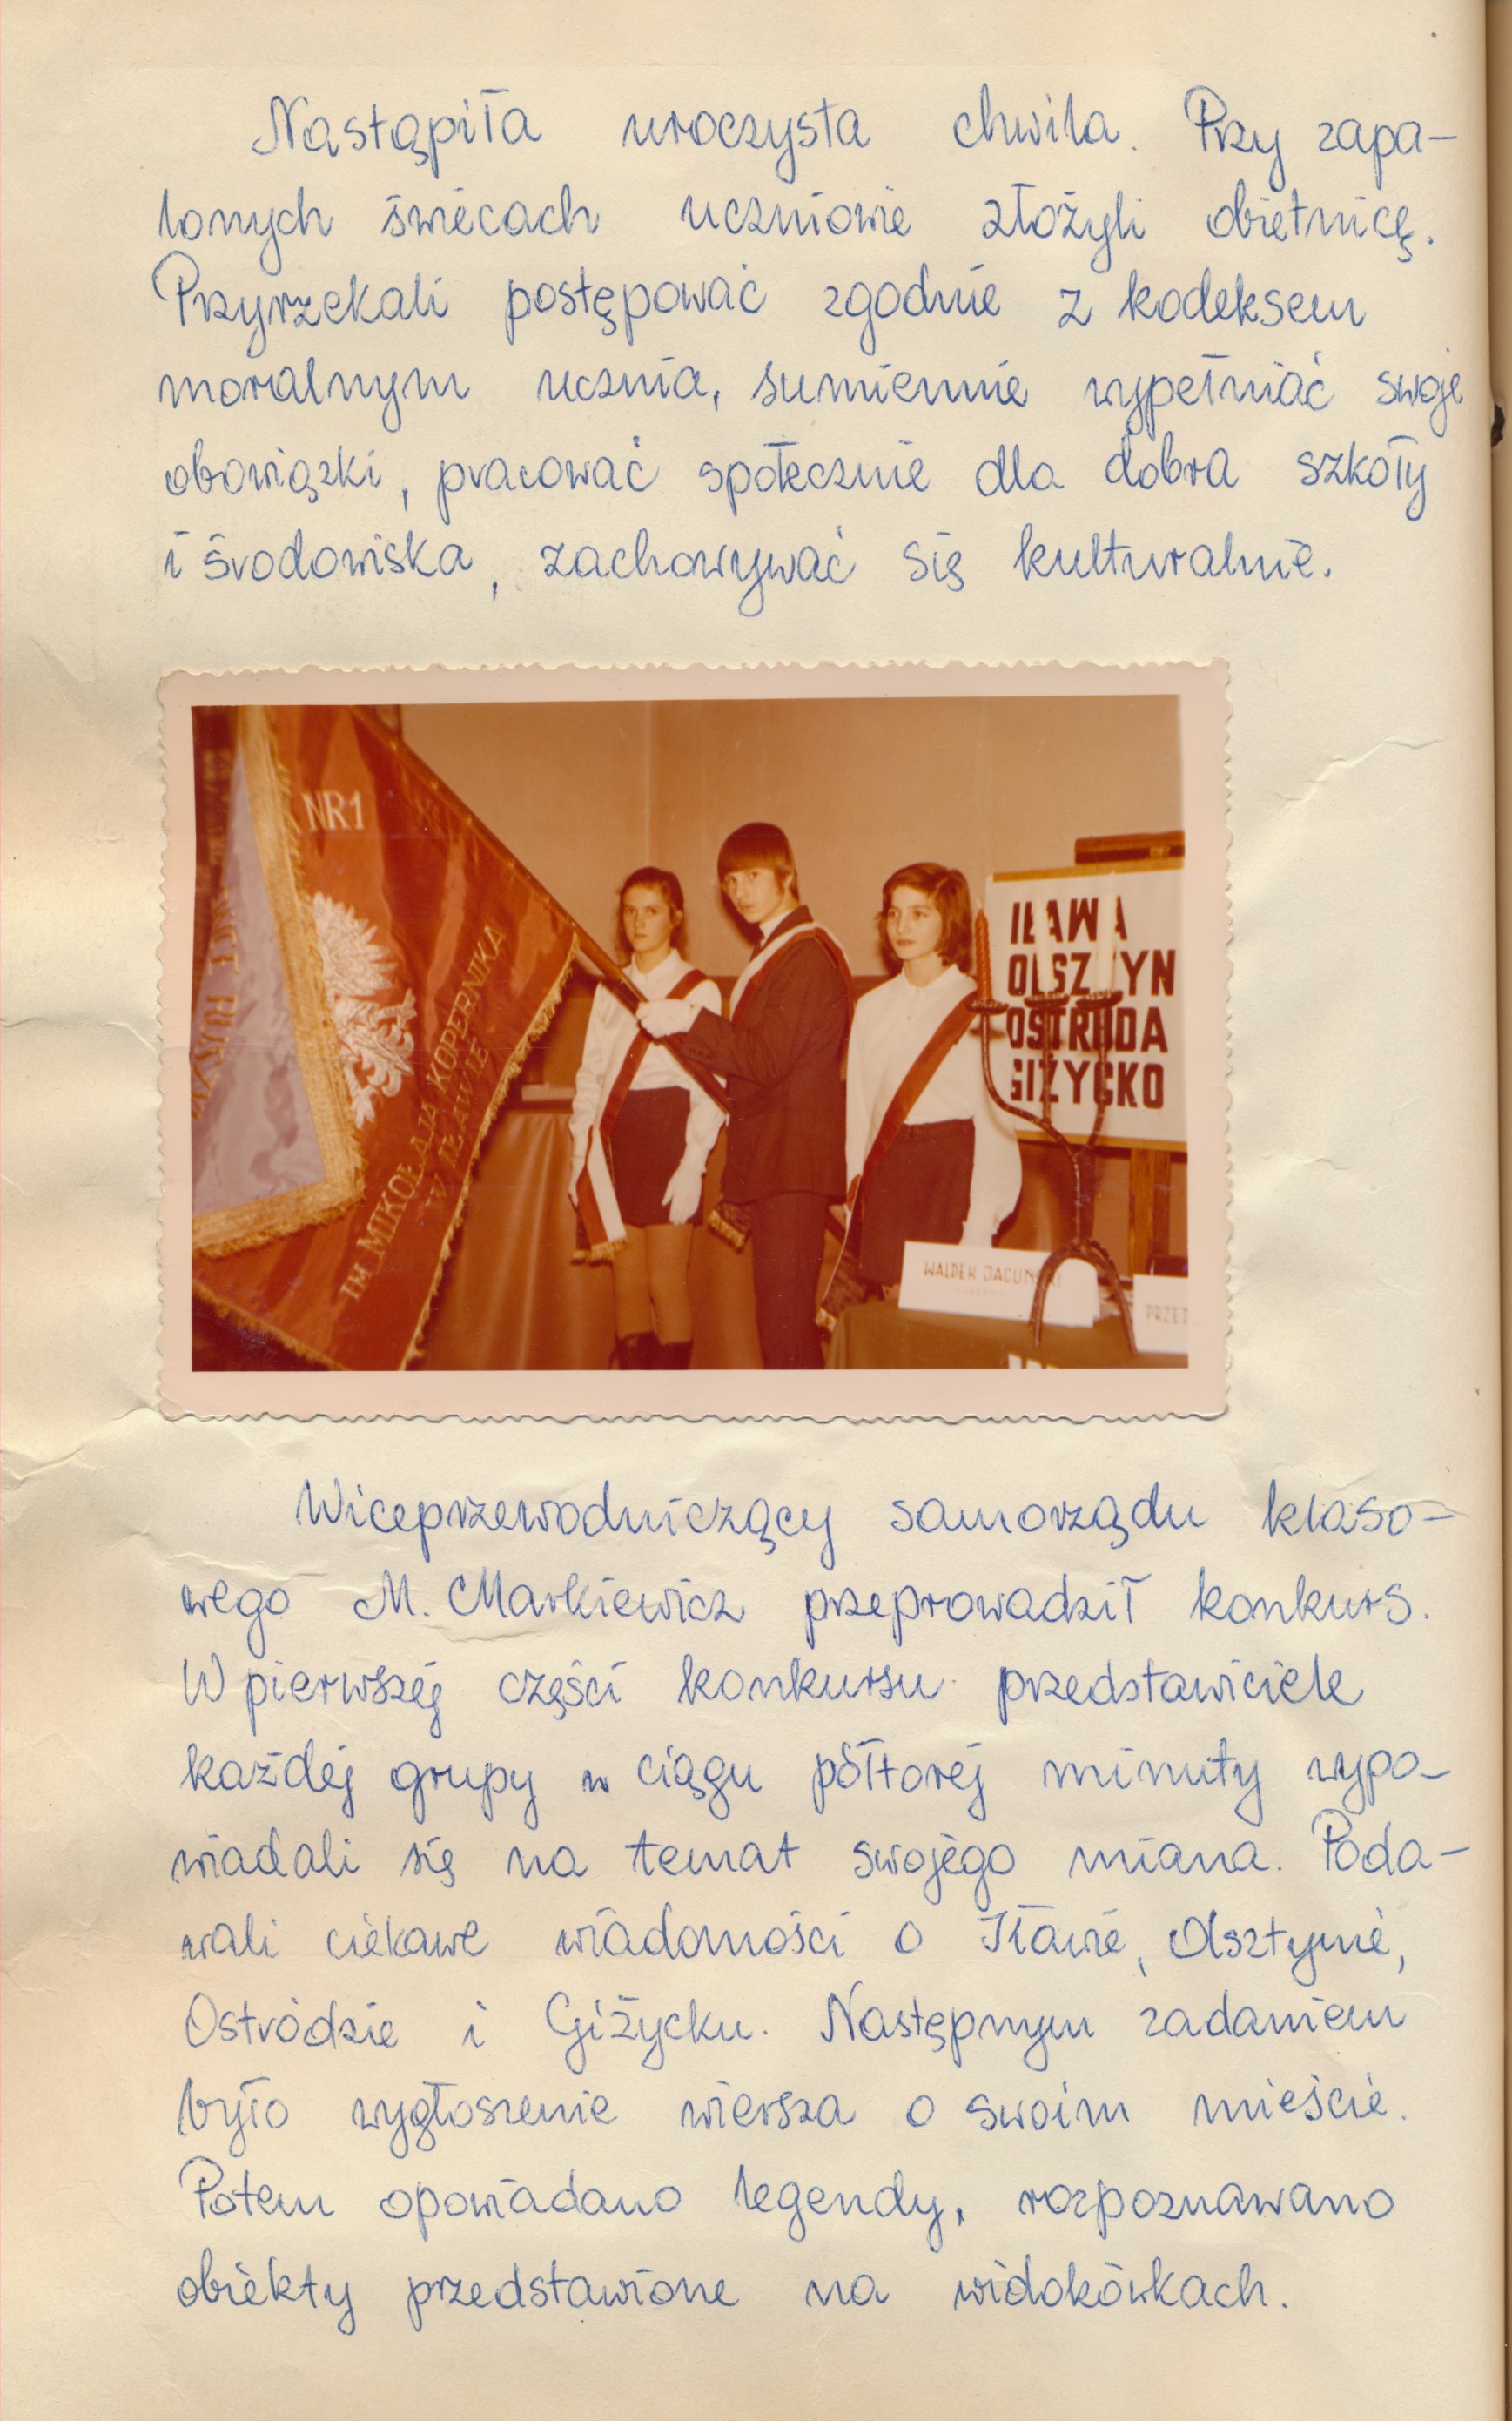 Nastąpiła uroczysta chwila. Przy zapa-
lonych świecach uczniowie złożyli obietnicę.
Przyrzekali postępować zgodnie z kodeksem
moralnym ucznia, sumiennie wypełniać swoje
obowiązki, pracować społecznie dla dobra szkoły
i środowiska, zachowywać się kulturalnie.
NR 1
IM MIKOŁAJA KOPERNIKA
W IŁAWIE
IŁAWA
OLSZTYN
OSTRÓDA
GIŻYCKO
WALDEK JACUŃSKI
PRZED
Wiceprzewodniczący samorządu klaso-
wego M. Markiewicz przeprowadził konkurs.
W pierwszej części konkursu przedstawiciele
każdej grupy w ciągu półtorej minuty wypo-
wiadali się na temat swojego miana. Poda-
wali ciekawe wiadomości o Iławie, Olsztynie,
Ostródzie i Giżycku. Następnym zadaniem
było wygłoszenie wiersza o swoim mieście.
Potem opowiadano legendy, rozpoznawano
obiekty przedstawione na widokówkach.